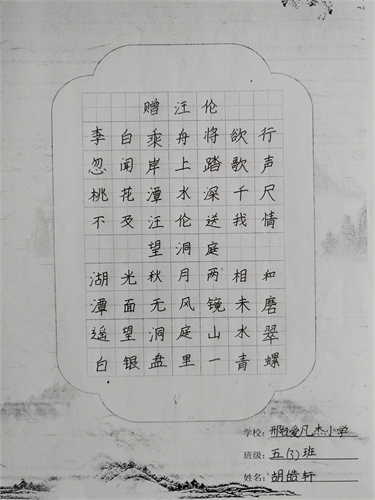 赠汪伦
李白乘舟将欲行
忽闻岸上踏歌声
桃花潭水深千尺
不及汪伦送我情
望洞庭
湖光秋月两相和
潭面无风镜未磨
遥望洞庭山水翠
白银盘里一青螺
学校：爱凡杰小学
班级：五(3)班
姓名：胡皓轩